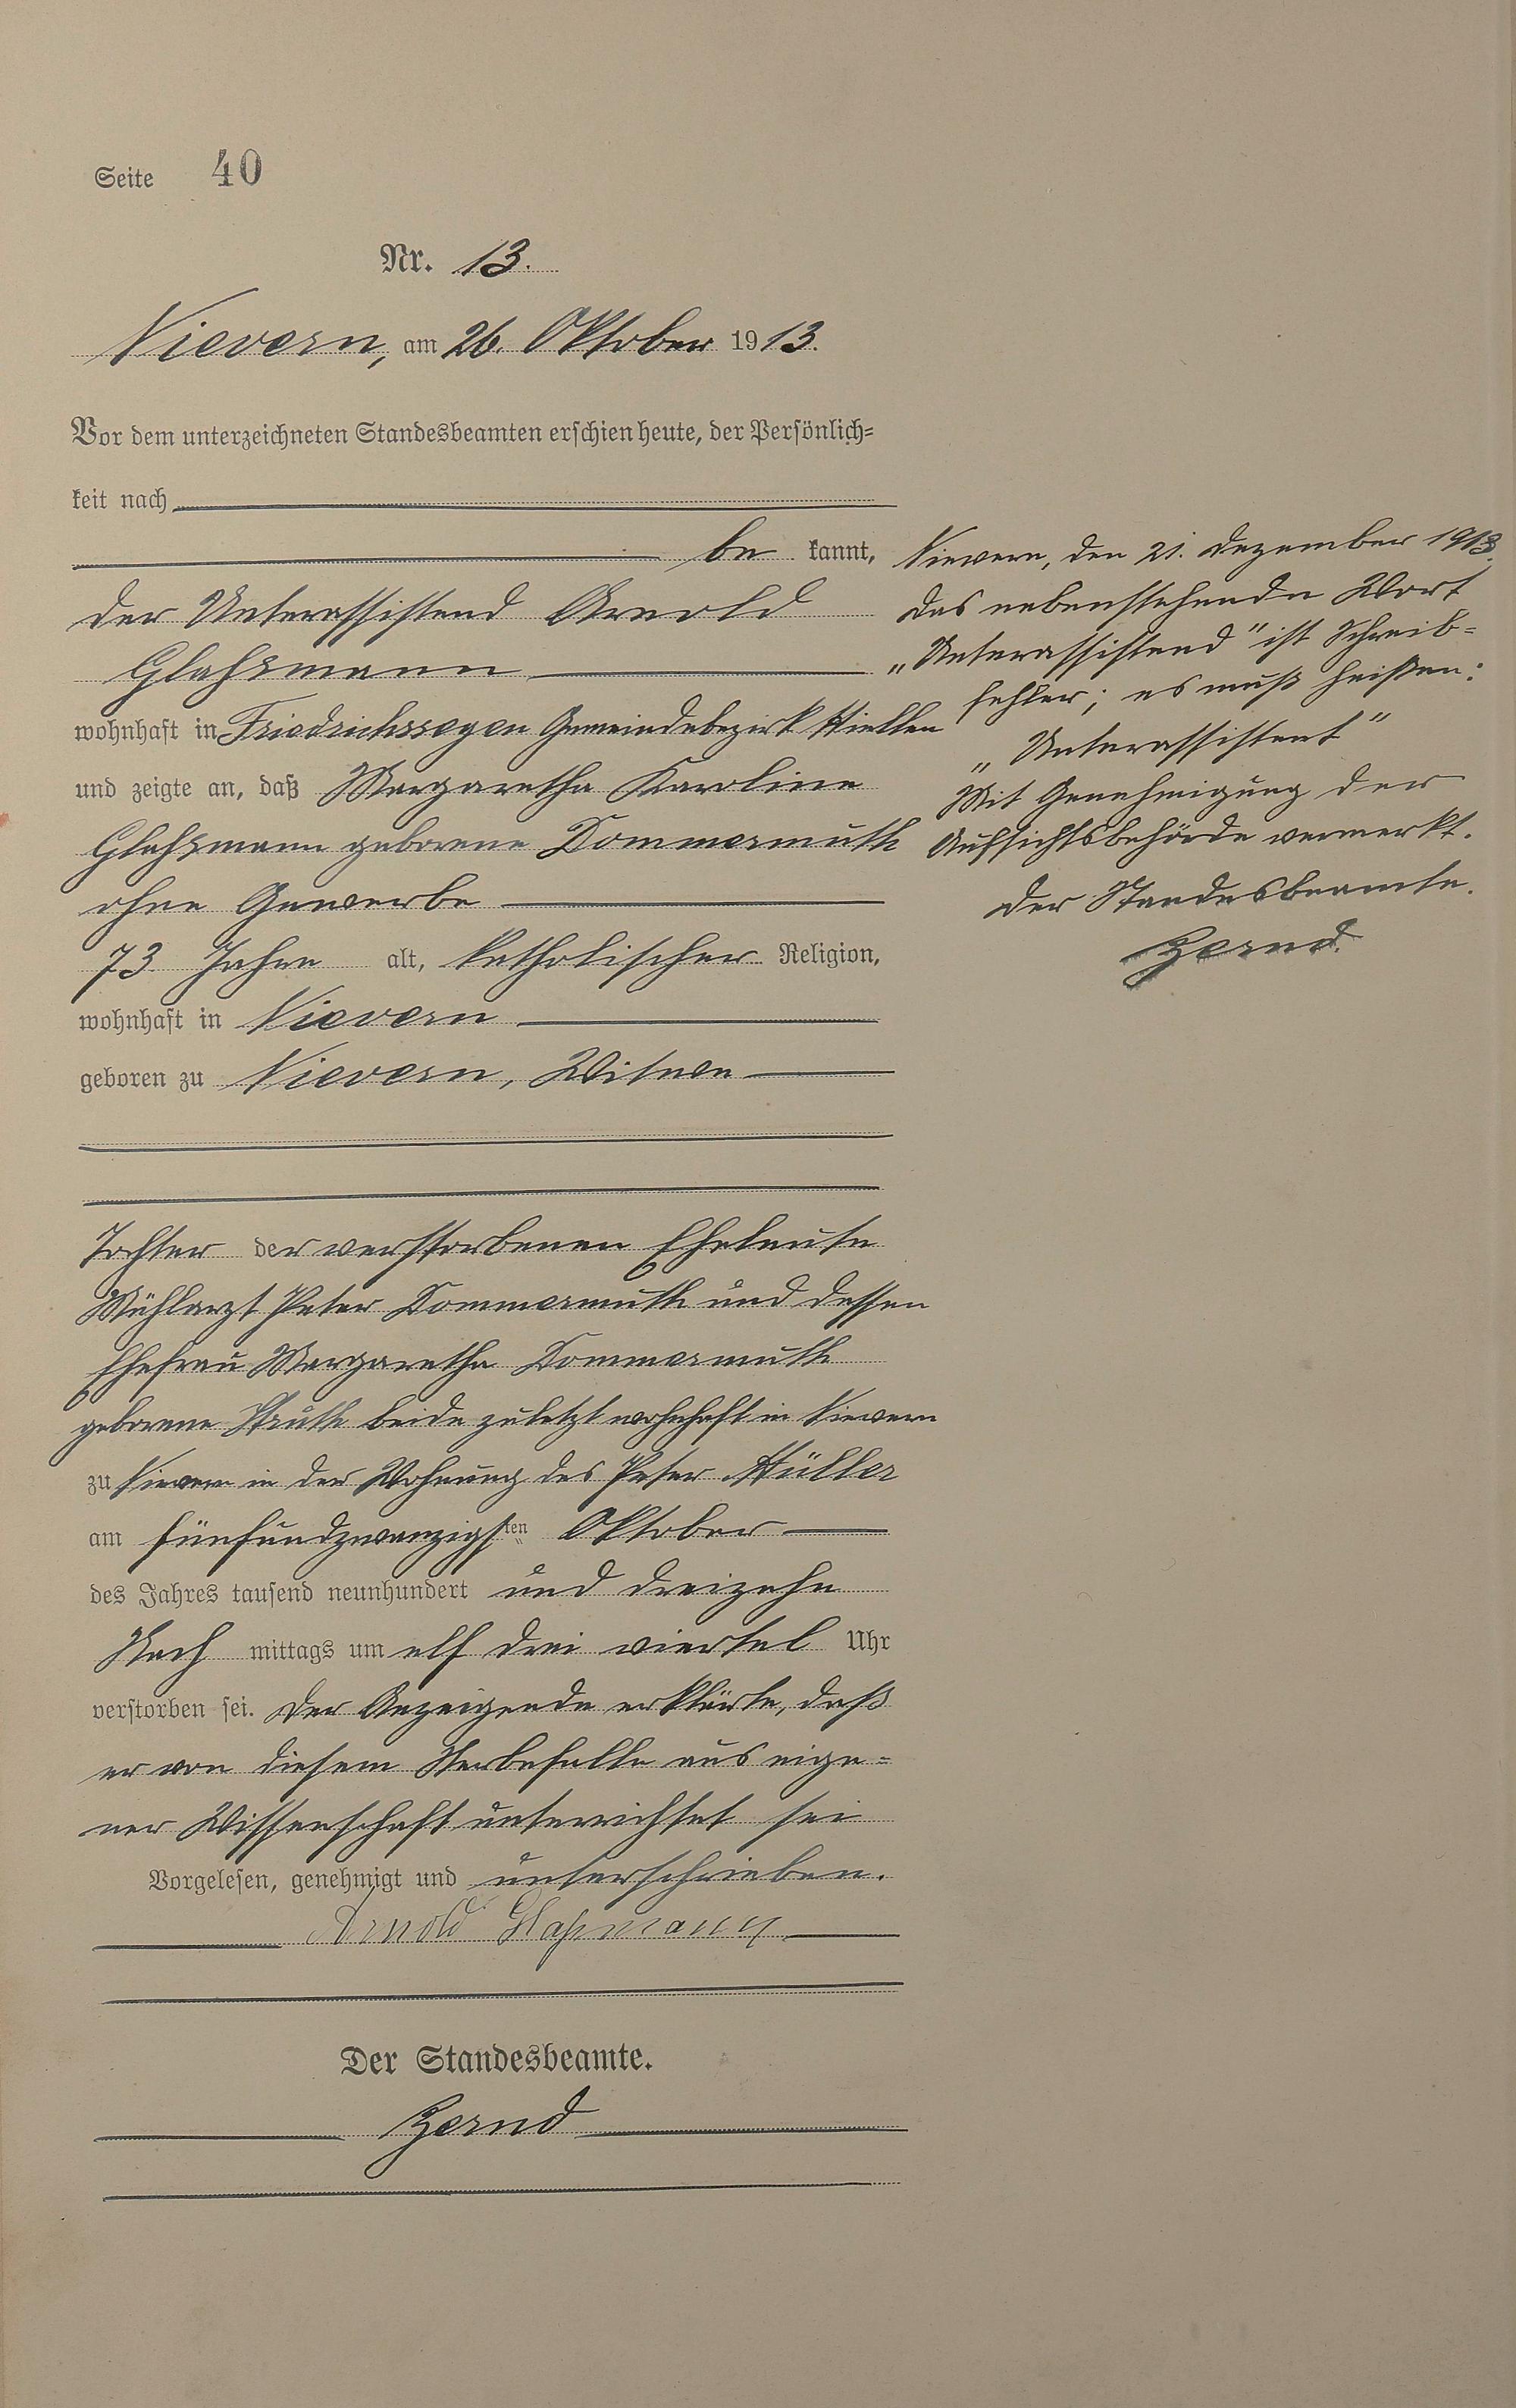 Seite 40
Nr. 13.
Nievern, am 26. Oktober 1913.
Vor dem unterzeichneten Standesbeamten erschien heute, der Persönlich=
keit nach
be kannt,
der Unterassistend Arnold
Glahsmann
wohnhaft in Friedrichssegen Gemeindebezirk Miellen
und zeigte an, daß Margaretha Karoline
Glahsmann geborene Dommermuth
ohne Gewerbe
73 Jahre alt, katholischer Religion,
wohnhaft in Nievern
geboren zu Nievern, Witwe
Tochter der verstorbenen Eheleute
Mühlarzt Peter Dommermuth und dessen
Ehefrau Margaretha Dommermuth
geborene Struth beide zuletzt wohnhaft in Nievern
zu Nievern in der Wohnung des Peter Müller
am fünfundzwanzigsten Oktober
des Jahres tausend neunhundert und dreizehn
Nach mittags um elf drei viertel Uhr
verstorben sei. Der Anzeigende erklärte, daß
er von diesem Sterbefalle aus eige=
ner Wissenschaft unterrichtet sei
Vorgelesen, genehmigt und unterschrieben.
Arnold Glaßmann
Der Standesbeamte.
Zernd
Nievern, den 21. Dezember 1913.
Das nebenstehende Wort
„Unterassistend" ist Schreib=
fehler; es muß heißen:
„Unterassistent"
Mit Genehmigung der
Aufsichtsbehörde vermerkt.
Der Standesbeamte.
Zernd.